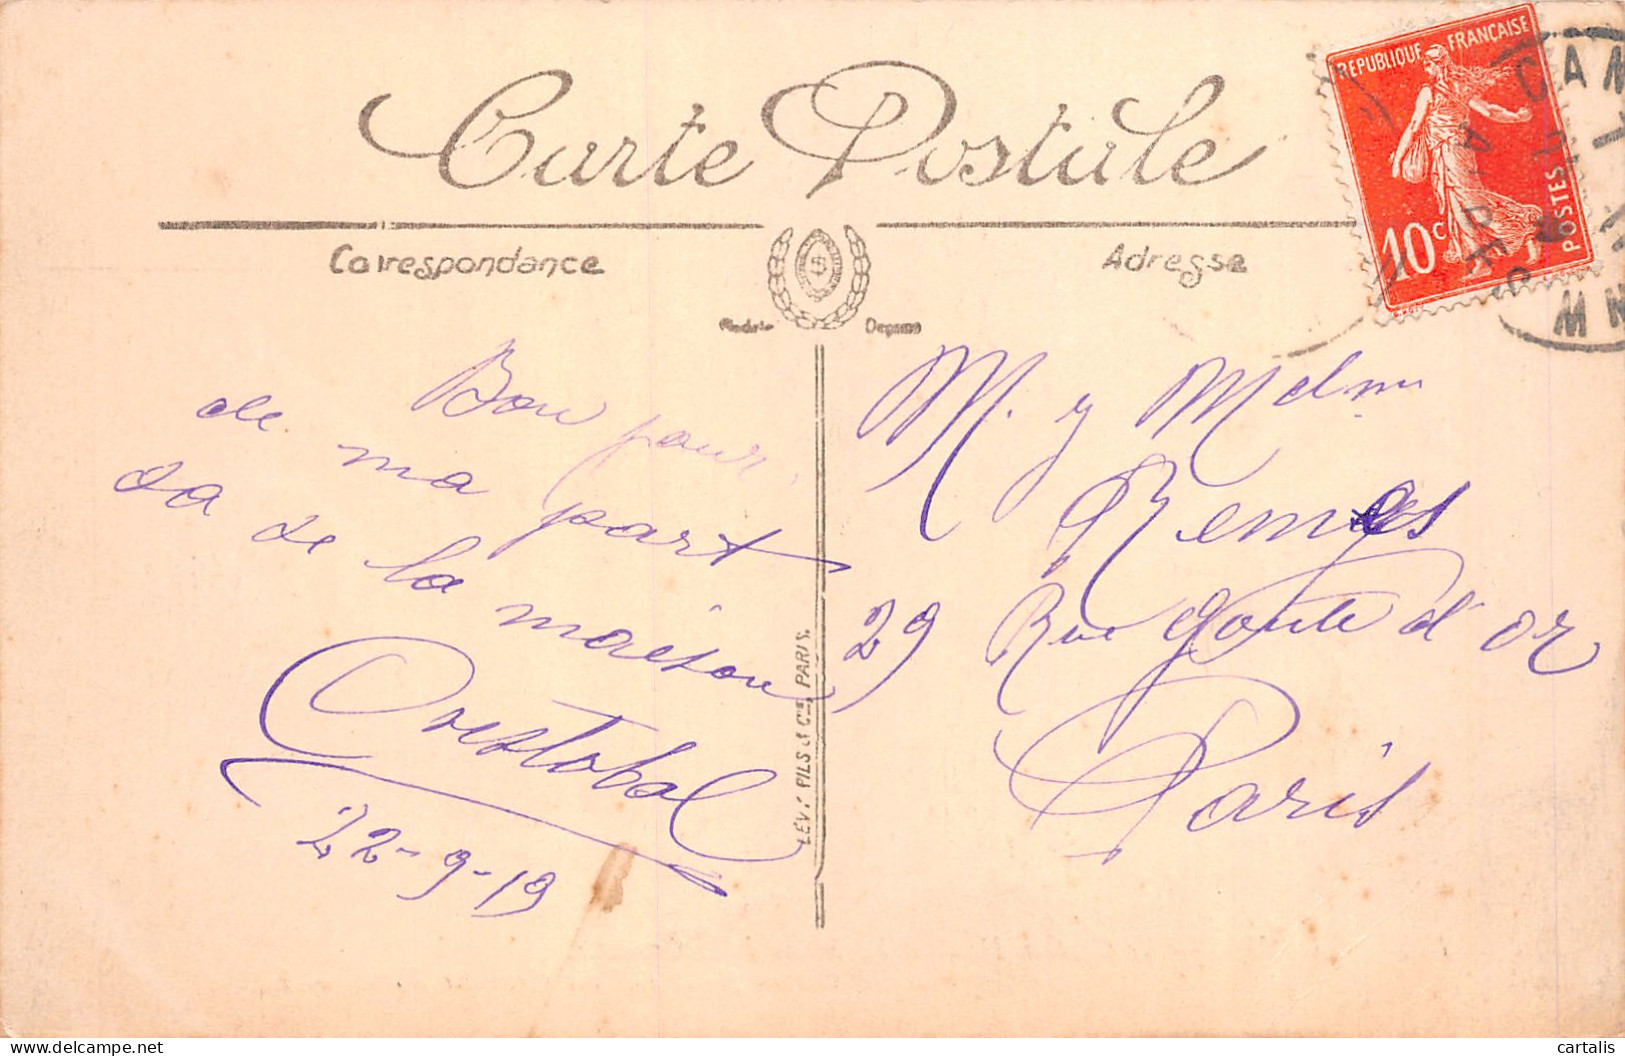 Carte Postale
REPUBLIQUE FRANÇAISE
10c
POSTES
CAN
Correspondance
Adresse
Modèle Déposé
Bon jour
de ma part
de la maison
Cristobal
22-9-19
LÉVY FILS & Cie, PARIS.
M. y Mdm
Remes
29 Rue Goute d'or
Paris
cartalis